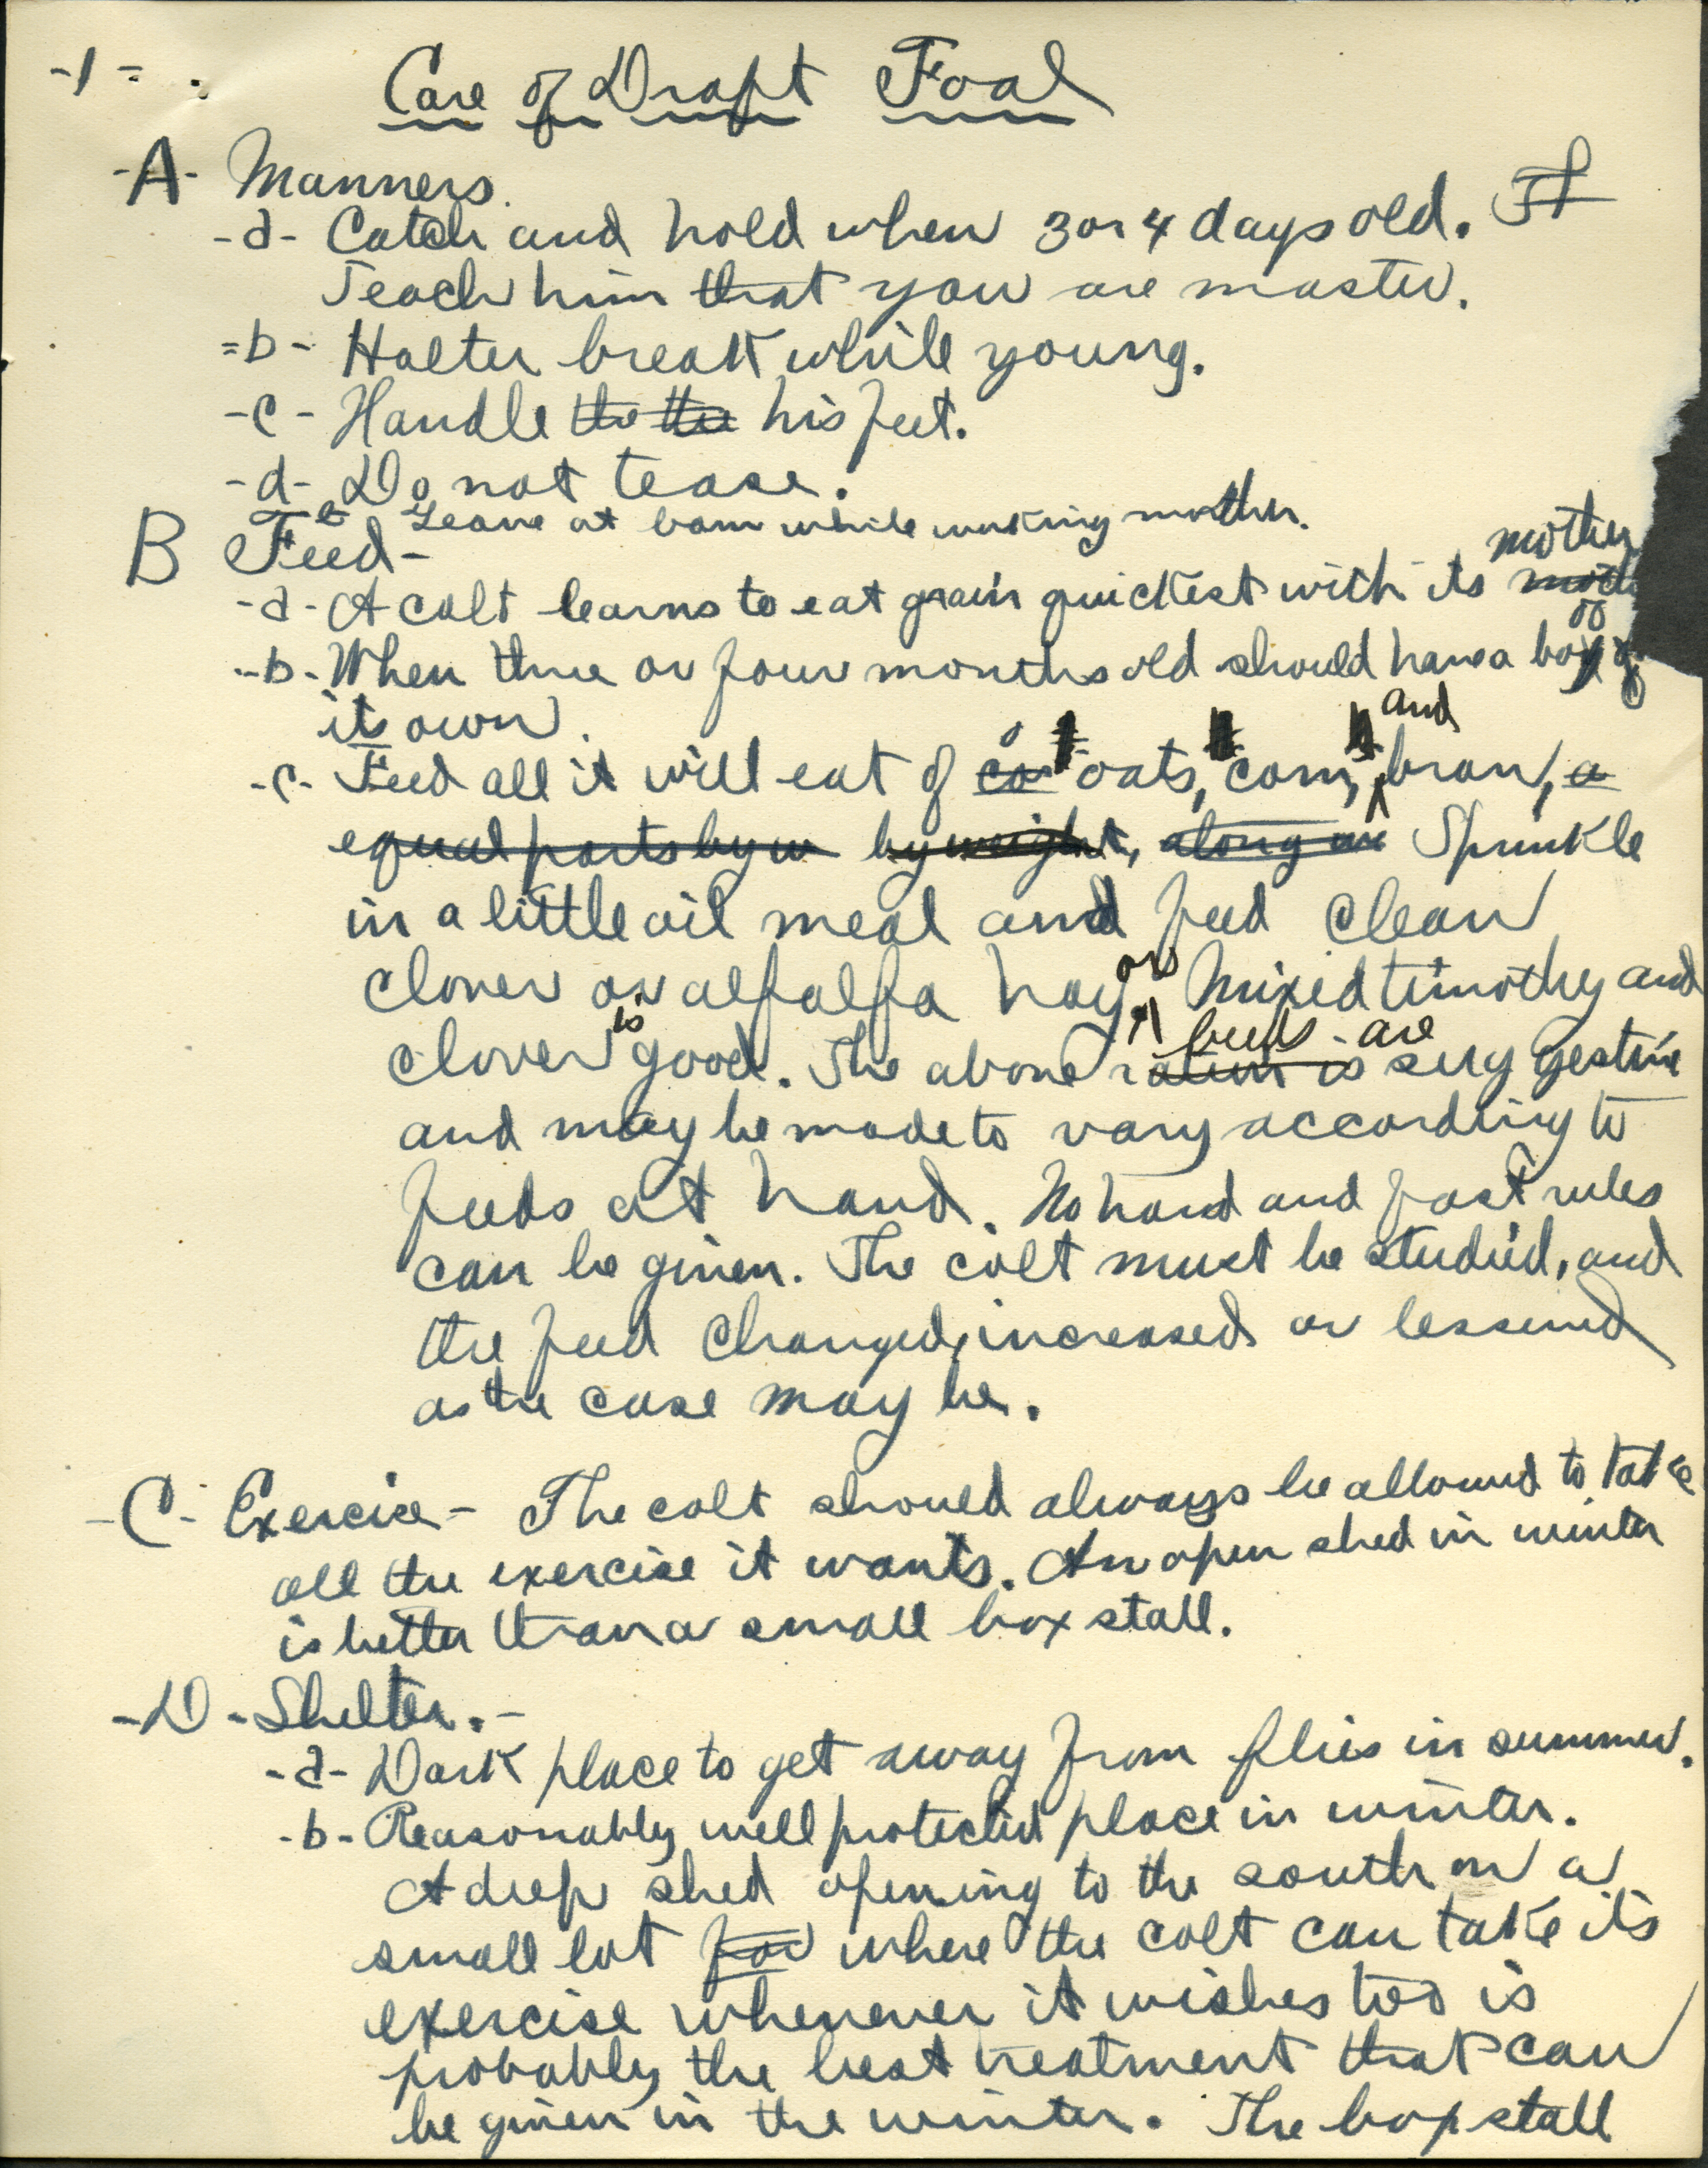 -1-
Care of Draft Foal
-A- Manners.
-a- Catch and hold when 3 or 4 days old. It
Teach him that you are master.
-b- Halter break while young.
-c- Handle the the his feet.
-d- Do not tease.
e Leave at barn while working mother.
B Feed-
mother
-a- A colt learns to eat grain quickest with its moth
of
-b- When three or four months old should have a box of
its own.
and
-c- Feed all it will eat of co oats, corn, bran, a
equal parts by w by weight, along Sprinkle
in a little oil meal and feed clean
clover or alfalfa hay. or Mixed timothy and
clover is good. The above ration is suggestive
feeds are
and may be made to vary according to
feeds at hand. No hard and fast rules
can be given. The colt must be studied, and
the feed changed, increased or lessened
as the case may be.
-C- Exercise - The colt should always be allowed to take
all the exercise it wants. An open shed in winter
is better than a small box stall.
-D- Shelter.-
-a- Dark place to get away from flies in summer.
-b- Reasonably well protected place in winter.
A deep shed opening to the south on a
small lot for where the colt can take its
exercise whenever it wishes too is
probably the best treatment that can
be given in the winter. The box stall